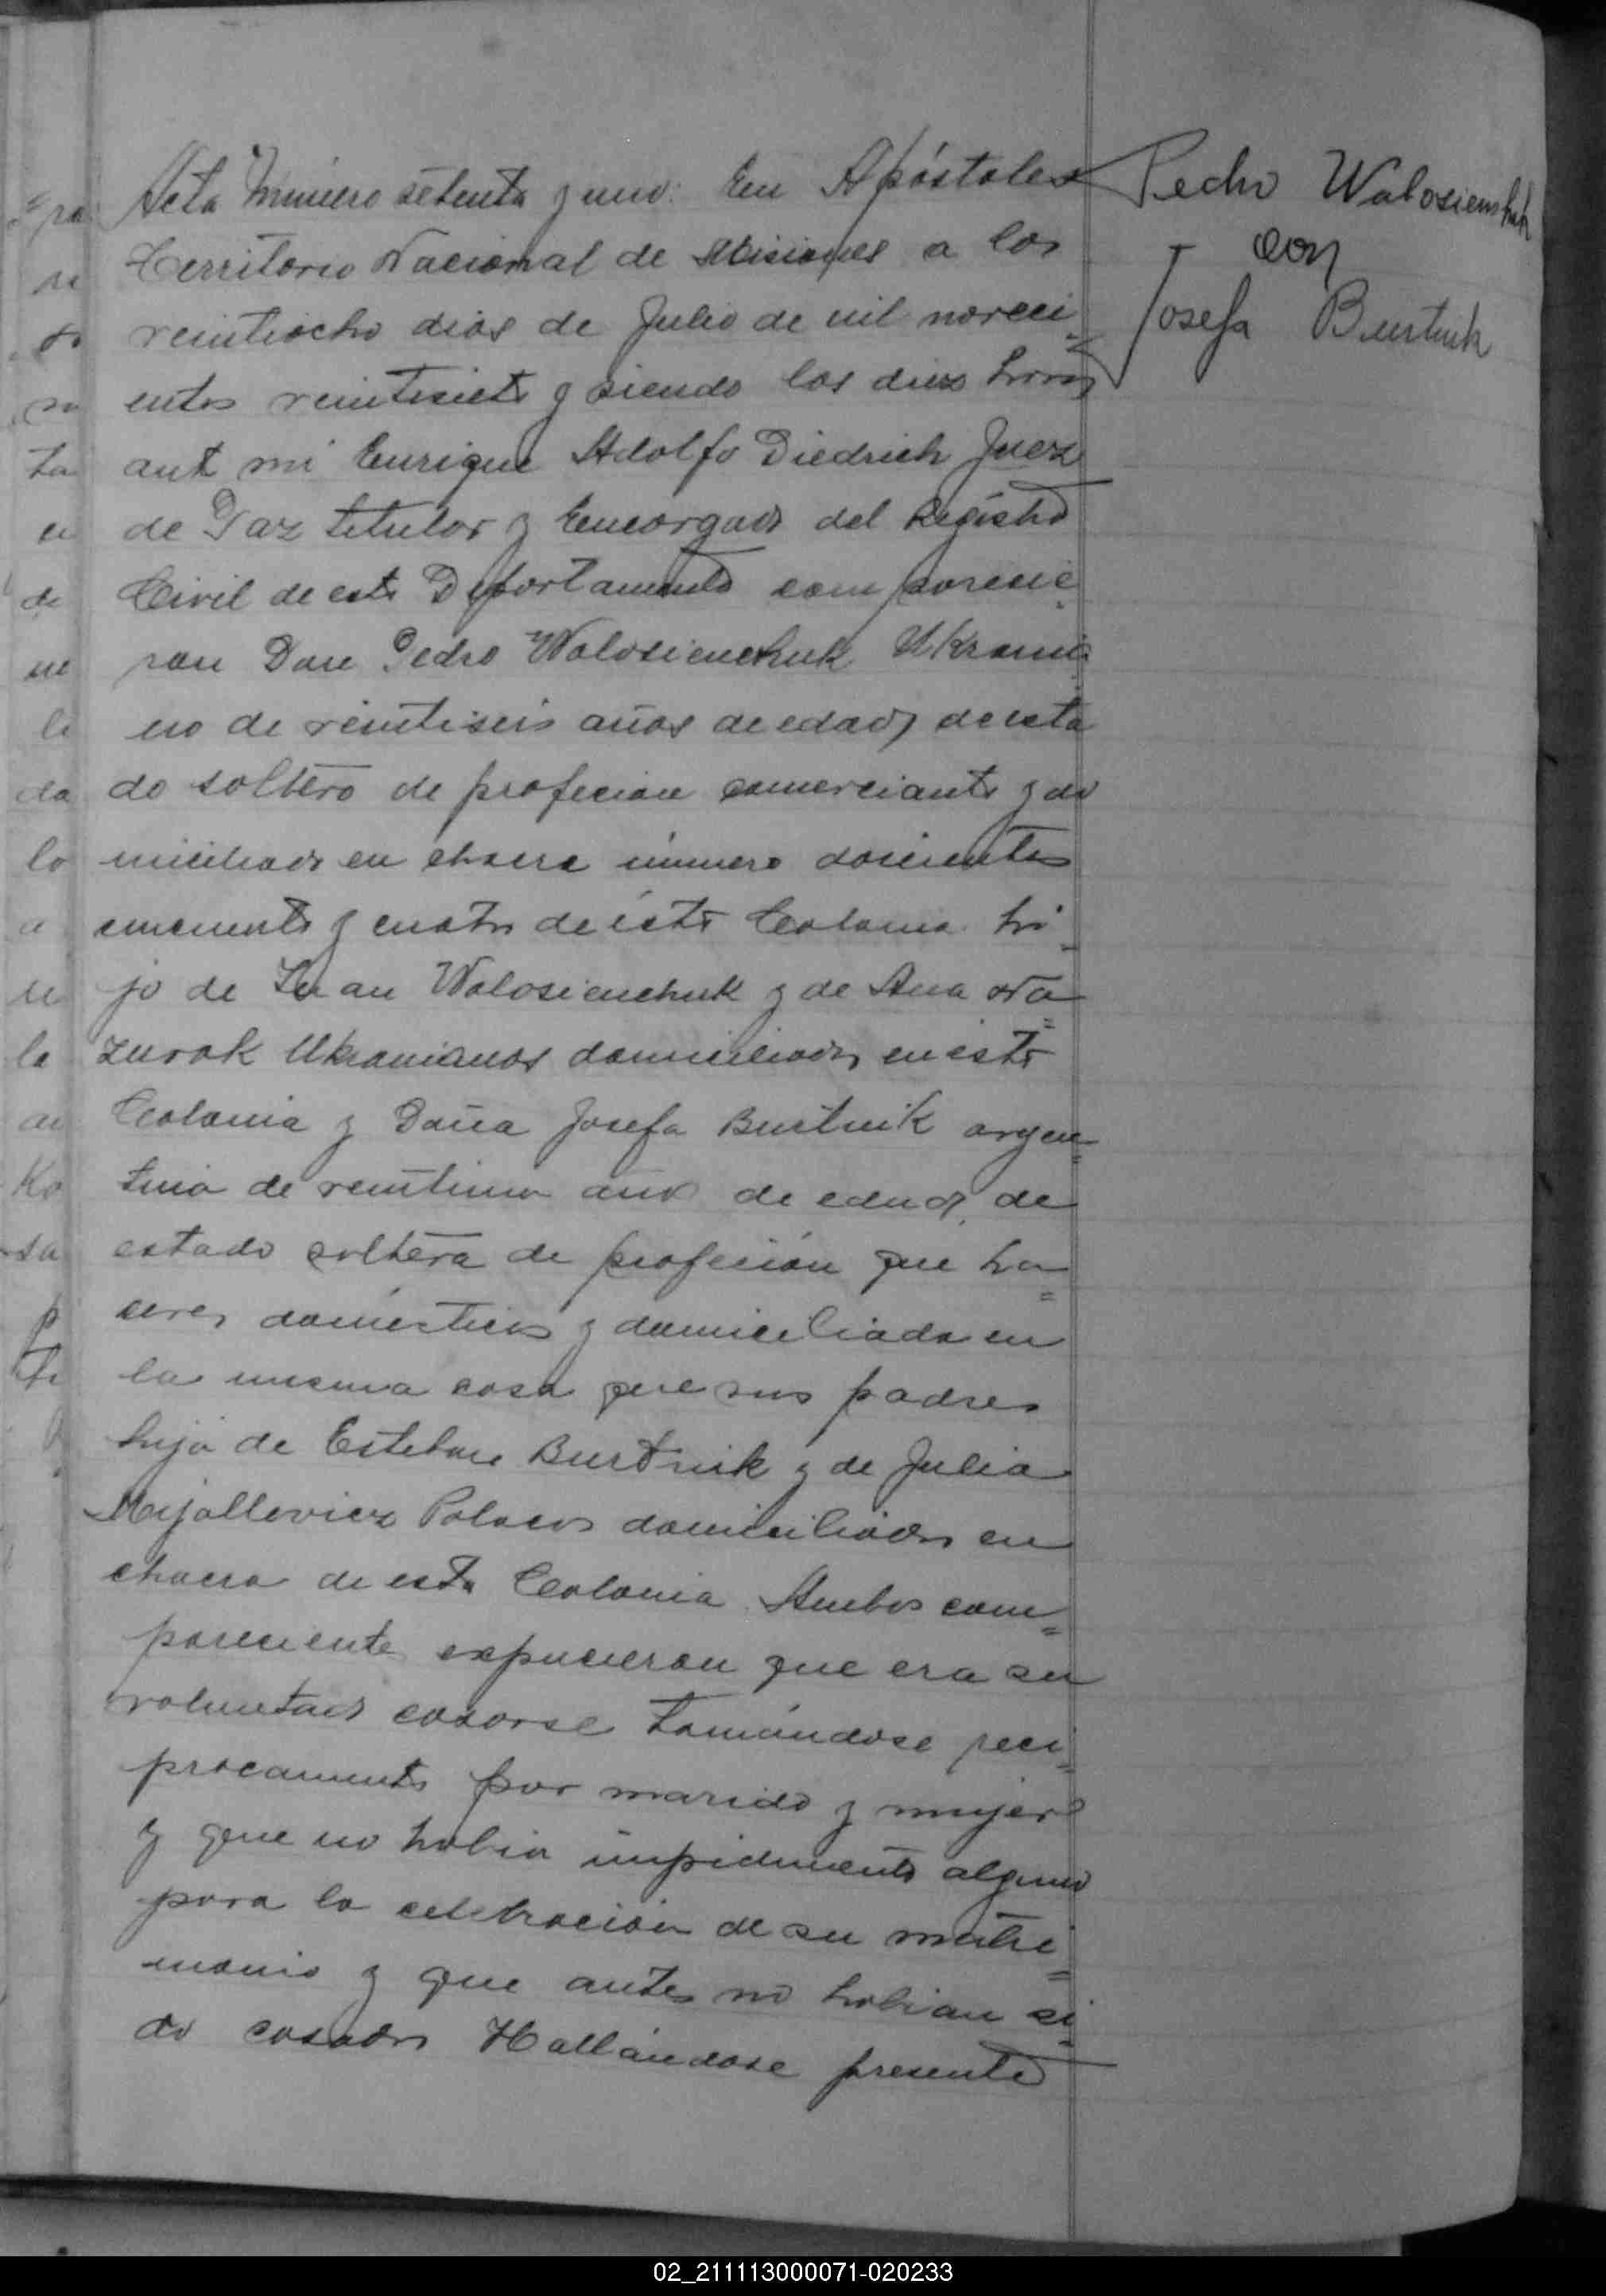 Acta Número setenta y uno: En Apóstoles
Territorio Nacional de Misiones a los
veintiocho dias de Julio de mil noveci-
entos veintisiete y siendo las diez horas
ante mi Enrique Adolfo Diedrich Juez
de Paz titular y Encargado del Registro
Civil de este Departamento comparecie-
ron Don Pedro Wolosienchuk Ukrania-
no de veintiseis años de edad, de esta
do soltero de profecion comerciante y do
miciliado en chacra número doscientos
cincuenta y cuatro de ésta Colonia hi-
jo de Juan Wolosienchuk y de Ana Na=
zurok Ukranianos domiciliados en ésta
Colonia y Doña Josefa Burtnik argen=
tina de veintiun año de edad, de
estado soltera de profeción que ha=
ceres domésticos y domiciliada en
la misma casa que sus padres
hija de Esteban Burtnik y de Julia
Mijallevicz Polacos domiciliados en
chacra de esta Colonia. Ambos com=
pareciente expucieron que era su
voluntad casarse tomándose reci-
procamente por marido y mujer
y que no habia impidimento alguno
para la celebración de su matri=
monio y que antes no habian si-
do casados Hallándose presente
Pedro Wolosienchuk
con
Josefa Burtnik
gra
ta
en
de
ne
le
da
lo
a
la
an
Ko
sa
02_211113000071-020233